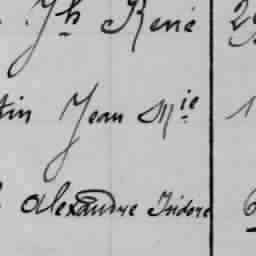 Jh René
tin Jean Mie
Alexandre Isidore